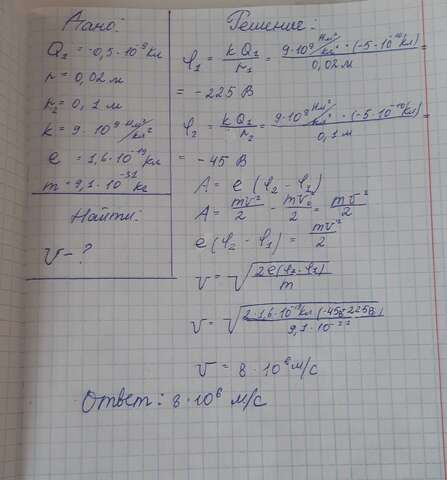 Дано:
Q₁ = -0,5·10⁻⁹ Кл
r₁ = 0,02 м
r₂ = 0,1 м
k = 9·10⁹ Нм²/Кл²
e = 1,6·10⁻¹⁹ Кл
m = 9,1·10⁻³¹ кг
Найти:
v - ?
Решение:
φ₁ = kQ₁/r₁ = 9·10⁹ Нм²/Кл² · (-5·10⁻¹⁰ Кл) / 0,02 м =
= -225 В
φ₂ = kQ₁/r₂ = 9·10⁹ Нм²/Кл² · (-5·10⁻¹⁰ Кл) / 0,1 м =
= -45 В
A = e (φ₂ - φ₁)
A = mv²/2 - mv₀²/2 = mv²/2
e(φ₂ - φ₁) = mv²/2
v = √(2e(φ₂-φ₁)/m)
v = √(2·1,6·10⁻¹⁹ Кл (-45+225В) / 9,1·10⁻³¹)
v = 8·10⁶ м/с
Ответ: 8·10⁶ м/с